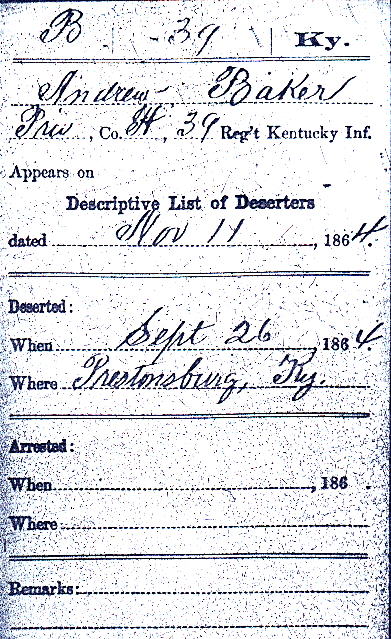 B | 39 | Ky.
Andrew Baker
Priv, Co. H, 39 Reg't Kentucky Inf.
Appears on
Descriptive List of Deserters
dated Nov 11, 1864.
Deserted:
When Sept 26, 1864.
Where Prestonsburg, Ky.
Arrested:
When, 186 .
Where
Remarks: